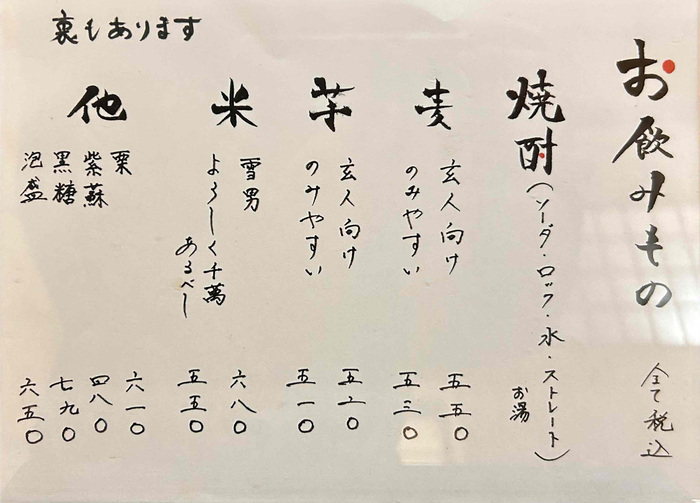 お飲みもの 全て税込
焼酎(ソーダ・ロック・水・ストレート)
お湯
麦
玄人向け 五五〇
のみやすい 五三〇
芋
玄人向け 五二〇
のみやすい 五一〇
米
雪男 六八〇
よろしく千萬
あるべし 五五〇
他
栗 六一〇
紫蘇 四八〇
黒糖 七九〇
泡盛 六五〇
裏もあります